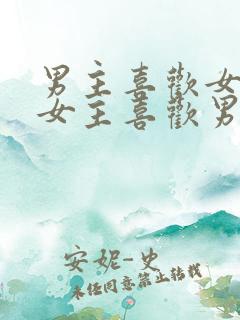 男主喜歡女
女主喜歡男
安妮-史
未经同意禁止转载